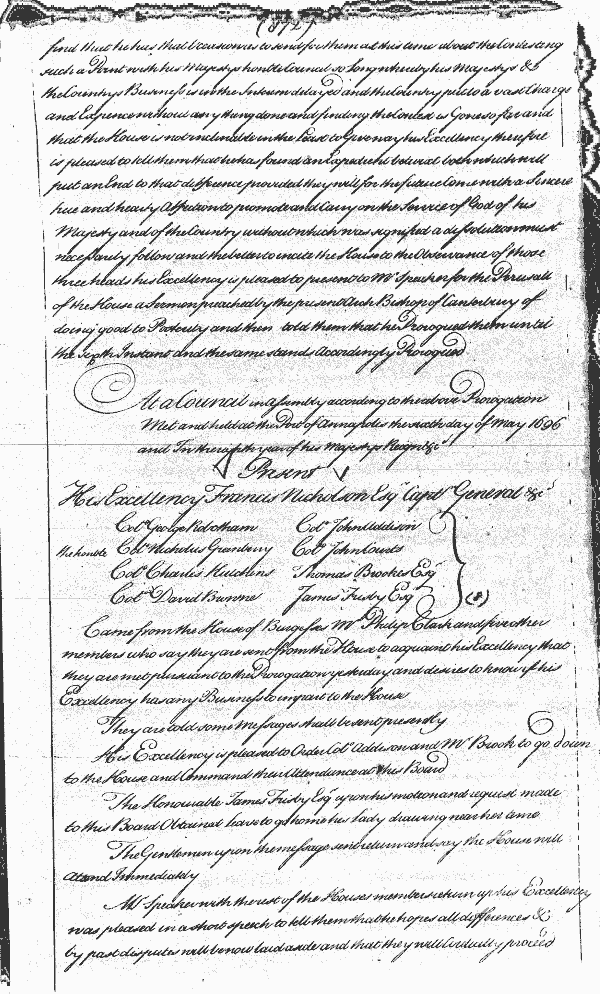 (872)
find that he has that reason as to send for them at this time about the Contesting
such a Point with his Majestys honble Council so long whereby his Majestys &
the Countrys Business is in the Interim delayed and the Country put to a vast Charge
and Expence without any thing done and finding the Contest is Gone so far and
that the House is not inclinable in the Least to Give way his Excellency therefore
is pleased to tell them that he has found an Expedient betwixt both which will
put an End to that difference provided they will for the future Come with a Sincere
true and hearty Affection to promote and Carry on the Service of God of his
Majesty and of the Country without which was signified a dissolution must
necessarily follow and the better to incite the House to the Observance of those
three heads his Excellency is pleased to present to Mr Speaker for the Perusall
of the House a Sermon preached by the present Arch Bishop of Canterbury of
doing good to Posterity and then told them that he Prorogued them until
the Sixth Instant and the same stands Accordingly Prorogued
At a Council in assembly according to the above Prorogation
Met and held at the Port of Annapolis the sixth day of May 1696
and In the eighth year of his Majestys Reign &c
Present
His Excellency Francis Nicholson Esqr Capt General &c
Colo George Robotham Colo John Addison
the honble Colo Nicholas Greenberry Colo John Courts
Colo Charles Hutchins Thomas Brookes Esqr
Colo David Browne James Frisby Esqr
Came from the House of Burgesses Mr Philip Clark and five other
members who say they are sent from the House to acquaint his Excellency that
they are met pursuant to the Prorogation yesterday and desires to know if his
Excellency has any Business to impart to the House
They are told some Messages shall be sent presently
His Excellency is pleased to Order Colo Addison and Mr Brook to go down
to the House and Command their Attendance at this Board
The Honourable James Frisby Esqr upon his motion and request made
to this Board Obtained leave to go home his lady drawing near her time
The Gentlemen upon the message sent return and say the House will
attend Immediately
Mr Speaker with the rest of the Houses members return up his Excellency
was pleased in a short speech to tell them that he hopes all differences &
by past disputes will be now laid aside and that they will Cordially proceed